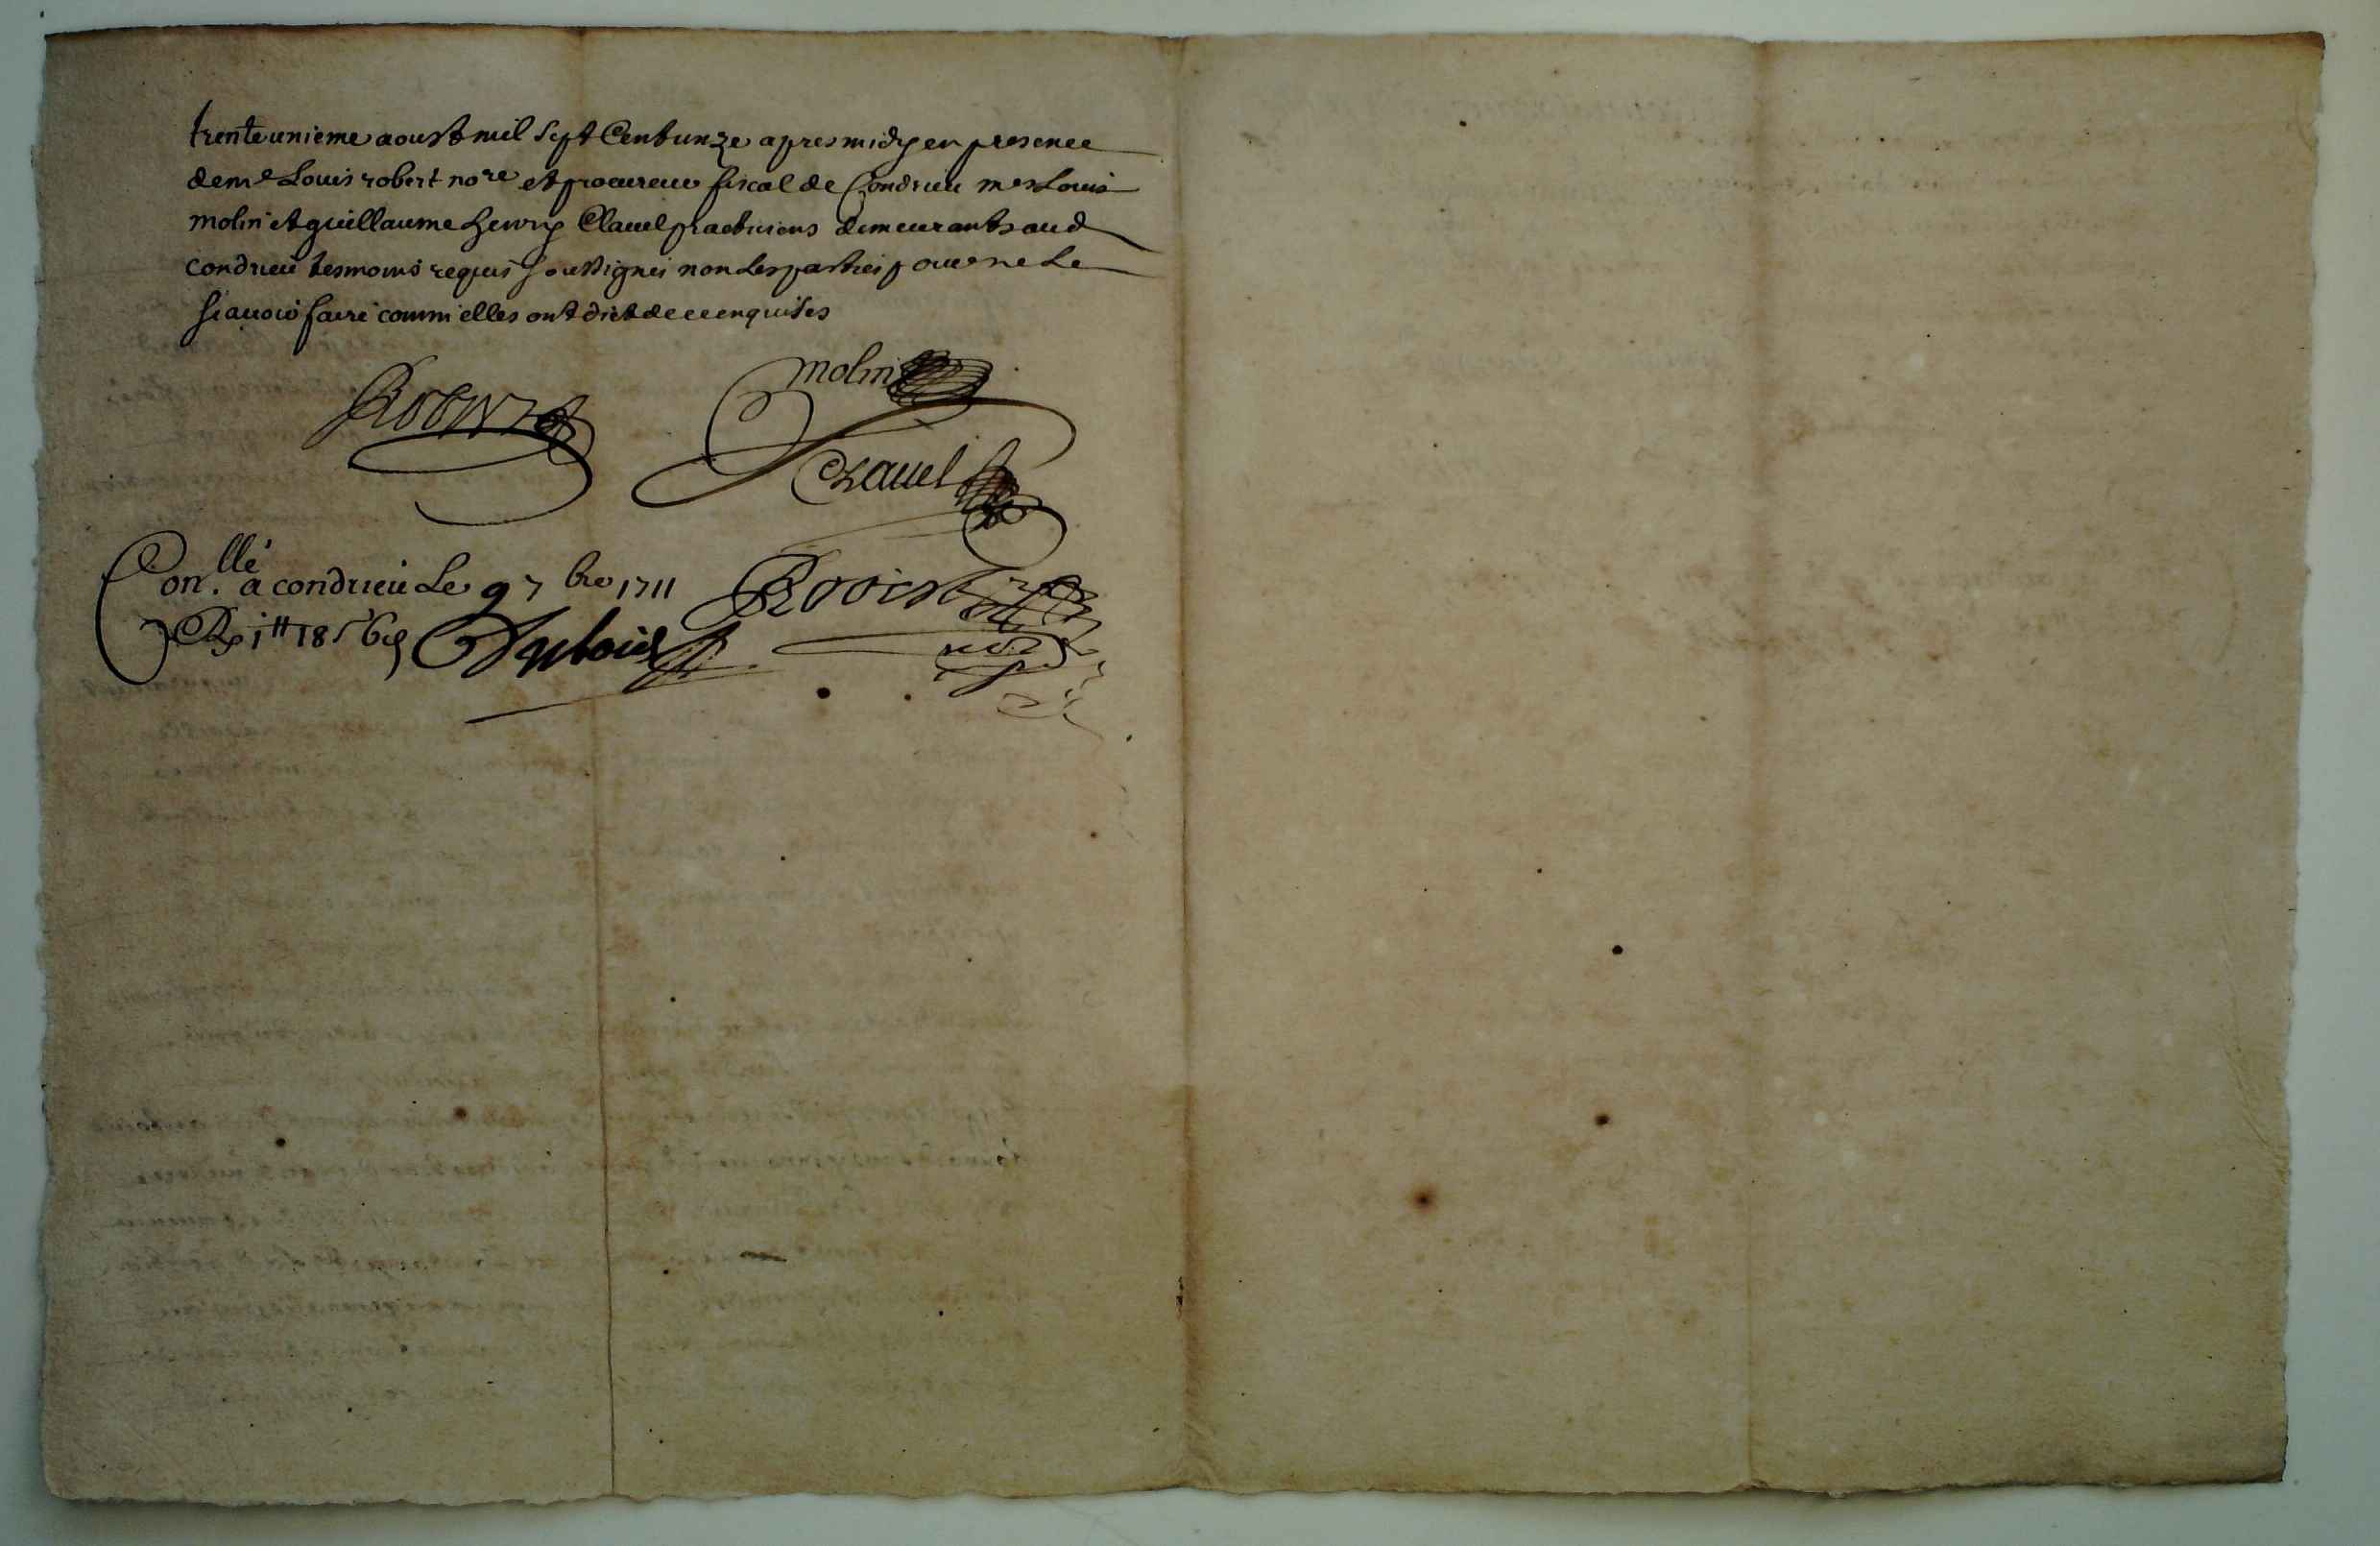 trente unieme aoust mil sept Cent unze apres midy en presence
de me Louis robert nore et procureur fiscal de Condrieu mes Louis
molin et guillaume henry Clauel practiciens demeurants aud
condrieu tesmoins requis soussignes non Les parties pour ne Le
sçauoir faire comm elles ont dict de ce enquises
Robert
molin
Clauel
Conllé a condrieu Le 9 7bre 1711 Robert
R 1tt 18s 6d